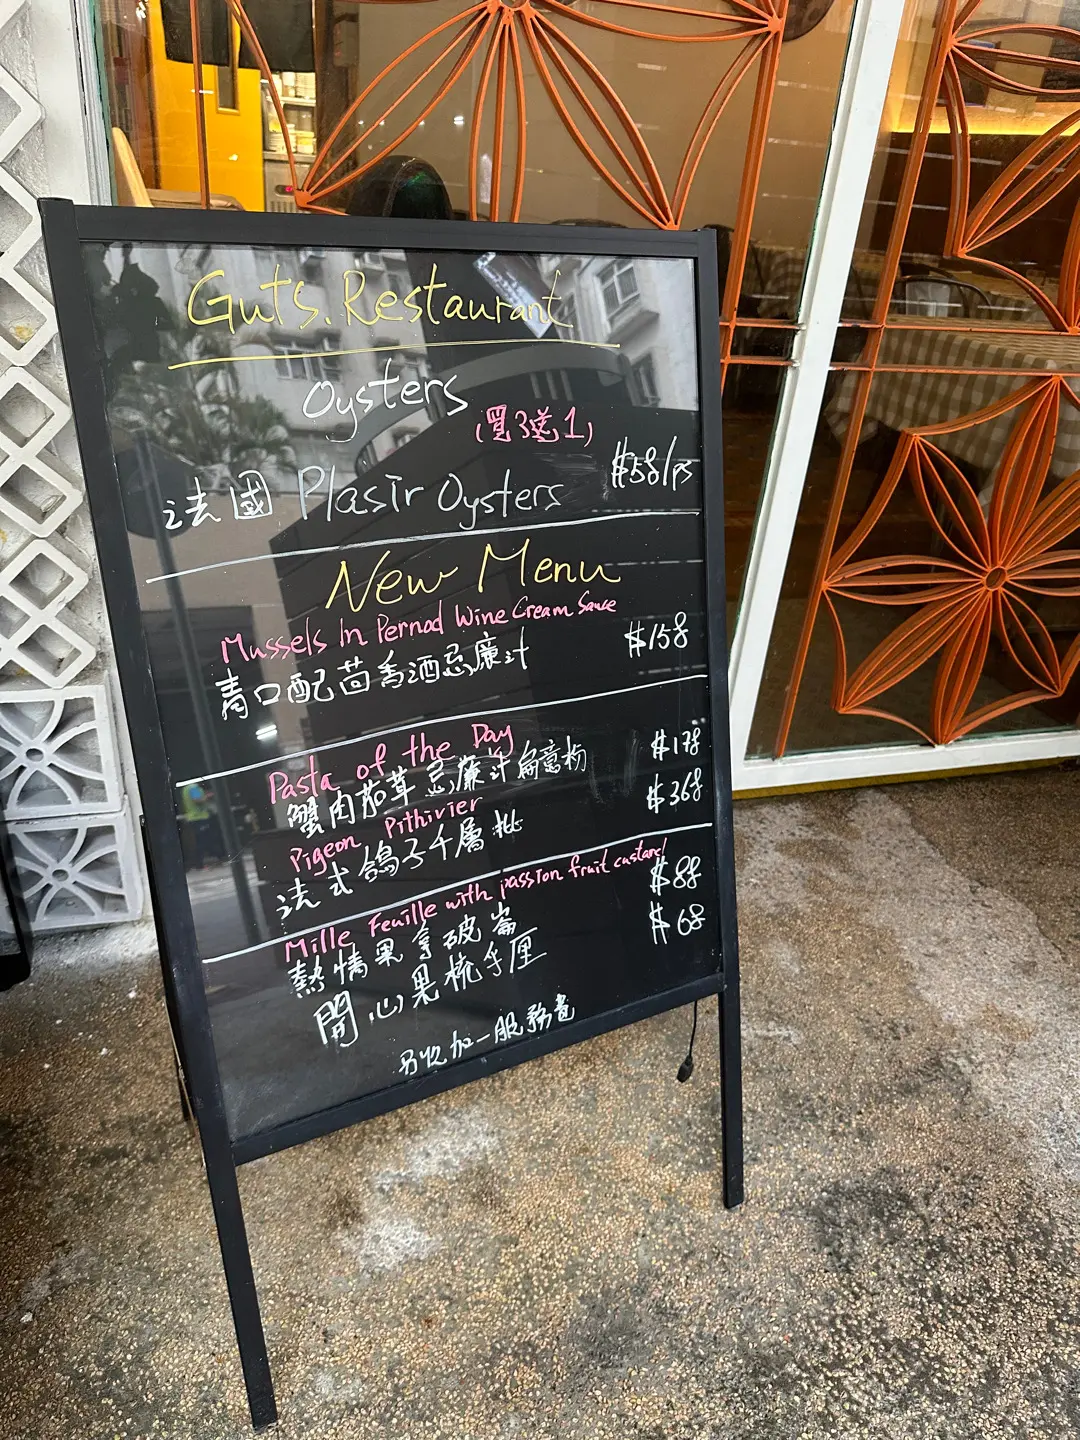 Guts. Restaurant
Oysters
(買3送1)
法國 Plasir Oysters $58/ps
New Menu
Mussels In Pernod Wine Cream Sauce
青口配茴香酒忌廉汁 $158
Pasta of the Day
蟹肉茄茸忌廉汁扁意粉 $178
Pigeon Pithivier
法式鴿子千層批 $368
Mille Feuille with passion fruit custard
熱情果拿破崙 $88
開心果梳乎厘 $68
另收加一服務費